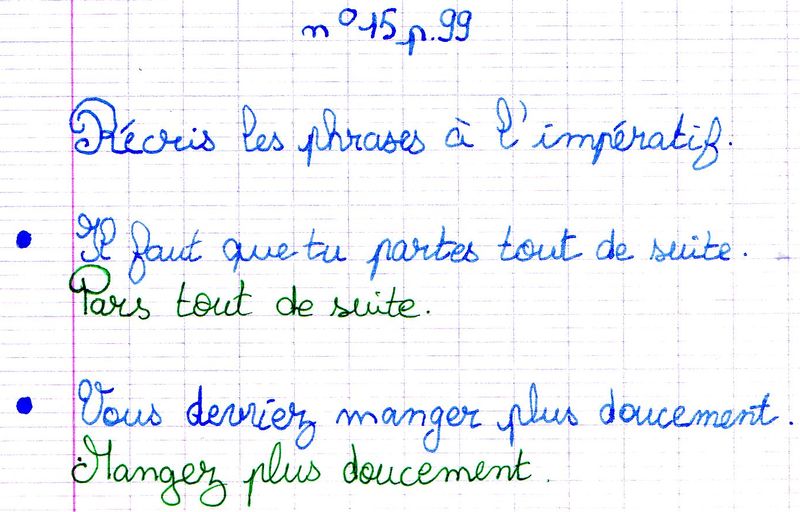 n° 15 p. 99
Récris les phrases à l'impératif.
• Il faut que tu partes tout de suite.
Pars tout de suite.
• Vous devriez manger plus doucement.
Mangez plus doucement.